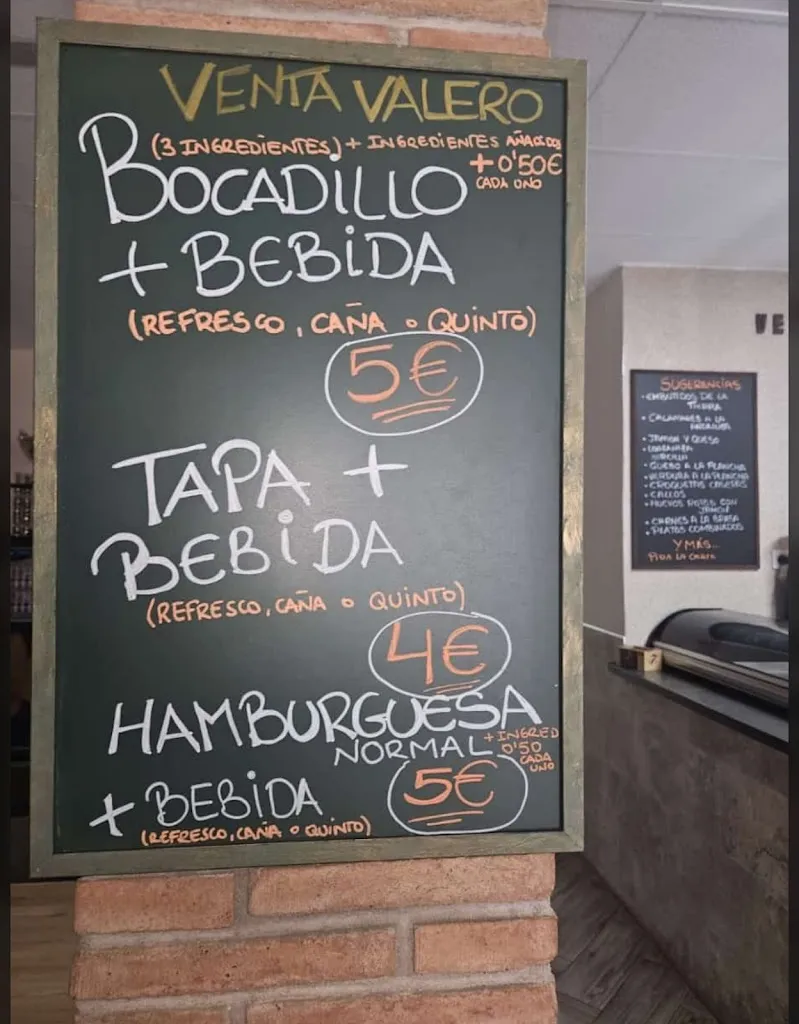 VENTA VALERO
(3 INGREDIENTES) + INGREDIENTES AÑADIDOS
+ 0'50€
CADA UNO
BOCADILLO
+ BEBIDA
(REFRESCO, CAÑA o QUINTO)
5€
TAPA +
BEBIDA
(REFRESCO, CAÑA o QUINTO)
4€
HAMBURGUESA
NORMAL
+ INGRED
0'50
CADA
UNO
+ BEBIDA
5€
(REFRESCO, CAÑA o QUINTO)
VE
SUGERENCIAS
• EMBUTIDOS DE LA
TIERRA
• CALAMARES A LA
ANDALUZA
• JAMON Y QUESO
• QUESO A LA PLANCHA
• VERDURA A LA PLANCHA
• CROQUETAS CASERAS
• CALLOS
• HUEVOS ROTOS CON
JAMON
• CARNES A LA BRASA
• PLATOS COMBINADOS
Y MÁS...
PIDA LA CARTA